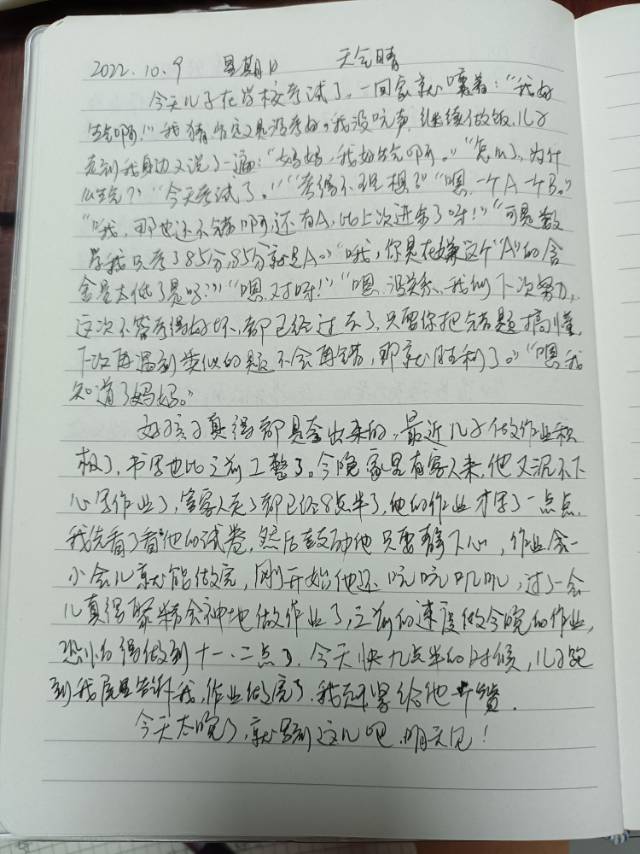 2022.10.9 星期日 天气晴
今天儿子在学校考试了,一回家就嚷着:“我好
生气啊!”我猜肯定又是没考好。我没吭声,继续做饭,儿子
走到我身边又说了一遍:“妈妈,我好生气啊。”“怎么了,为什
么生气?”“今天考试了。”“考得不理想?”“嗯,一个A一个B。”
“哦,那也还不错啊,还有A,比上次进步了呀!”“可是数
学我只考了85分,85分就是A。”“哦,你是在嫌这个“A”的含
金量太低了是吗?”“嗯,对呀!”“嗯,没关系,我们下次努力,
这次不管考得好坏,都已经过去了,只要你把错题搞懂,
下次再遇到类似的题不会再错,那就胜利了。”“嗯我
知道了妈妈。”
好孩子真得都是夸出来的,最近儿子做作业积
极了,书写也比之前工整了。今晚家里有客人来,他又沉不下
心写作业了,等客人走了都已经8点半了,他的作业才写了一点点,
我先看了看他的试卷,然后鼓励他只要静下心,作业一会
小会儿就能做完,刚开始他还吭吭叽叽,过了一会
儿真得聚精会神地做作业了,之前的速度做今晚的作业,
恐怕得做到十一、二点了,今天快九点半的时候,儿子跑
到我屋里告诉我,作业做完了,我冠冕给他个赞.
今天太晚了,就写到这儿吧,明天见!